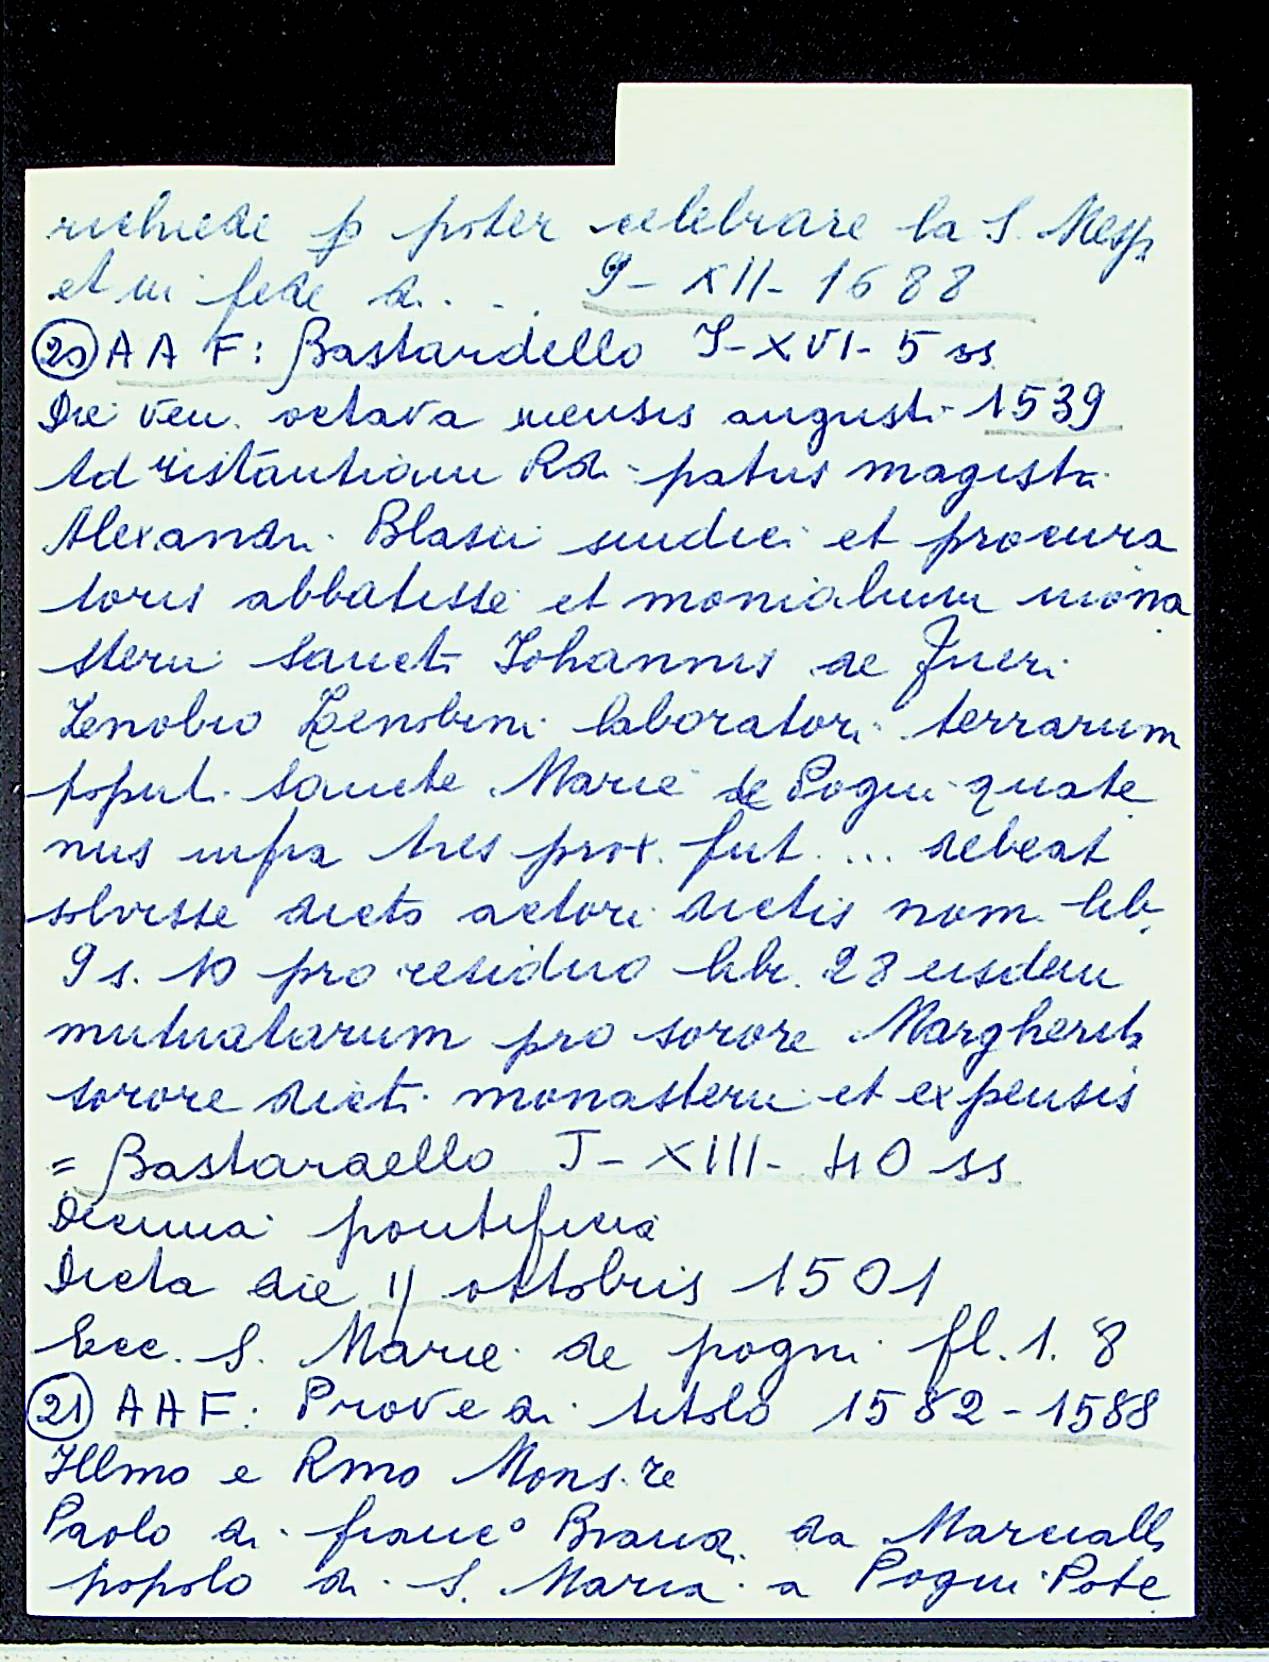 richiede p poter celebrare la S. Messa
et in fede di . . . 9 - XII - 1688
20 AAF: Bastardello I-XVI-5 ss
Die ven. octava mensis augusti 1539
Ad istantiam Rdi patris magistri
Alexandri Blasii sindici et procura
toris abbatisse et monialium mona
sterii sancti Iohannis de
Zenobio Zenobini laboratori terrarum
populi sancte Marie de Pogni quate
nus infra tres prox. fut. ... debeat
solvisse dicto actori dictis nom. lib.
9 s. 10 pro residuo libr. 28 eisdem
mutuatarum pro sorore Margherita
sorore dicti monasterii et expensis
= Bastardello I-XIII-40 ss
Decima pontificia
Dicta die 11 ottobris 1501
Ecc. S. Marie de pogni fl. 1. 8
21 AAF: Prove di titolo 1582-1588
Illmo e Rmo Mons.re
Paolo di franc° da Marcialla
popolo di S. Maria a Pogni Pote